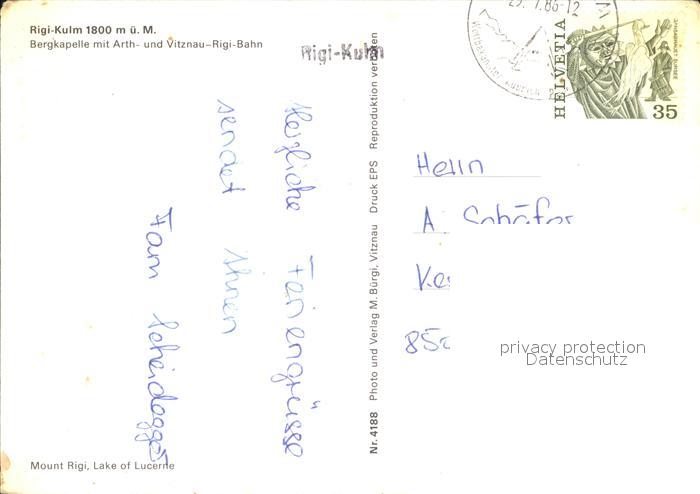 Rigi-Kulm 1800 m ü. M.
Bergkapelle mit Arth- und Vitznau-Rigi-Bahn
Rigi-Kulm
Herzliche Feriengrüsse
sendet Ihnen
Fam Scheidegger
Mount Rigi, Lake of Lucerne
Nr. 4188 Photo und Verlag M. Bürgi, Vitznau Druck EPS Reproduktion verboten
HELVETIA
35
Herrn
A Schäfer
privacy protection
Datenschutz